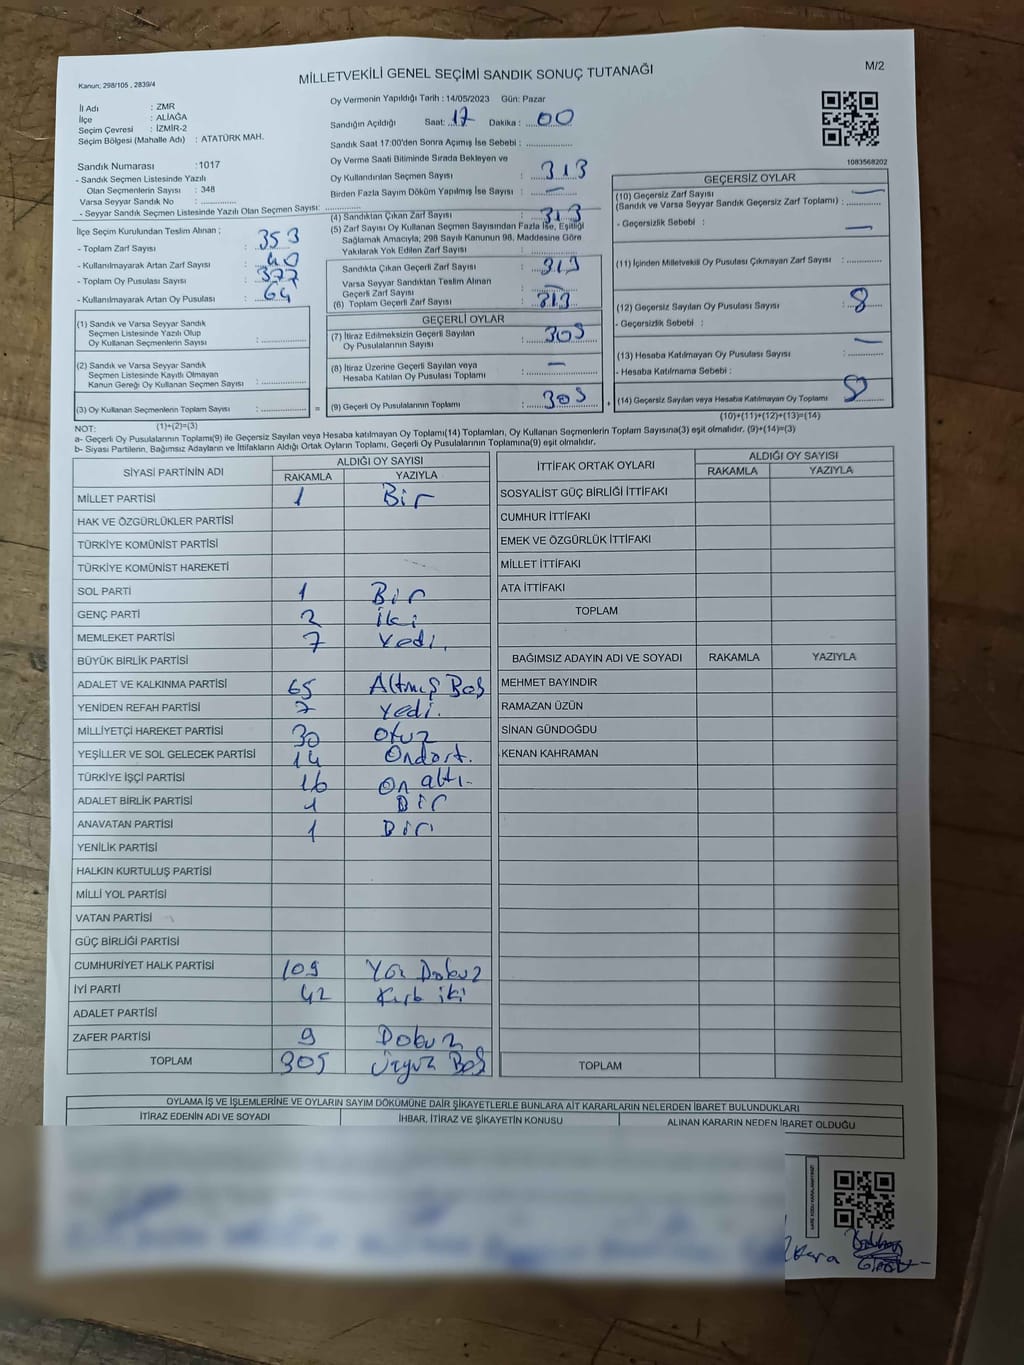 Kanun; 298/105 , 2839/4
MİLLETVEKİLİ GENEL SEÇİMİ SANDIK SONUÇ TUTANAĞI
M/2
İl Adı : ZMR
İlçe : ALİAĞA
Seçim Çevresi : İZMİR-2
Seçim Bölgesi (Mahalle Adı) : ATATÜRK MAH.
Sandık Numarası : 1017
- Sandık Seçmen Listesinde Yazılı
Olan Seçmenlerin Sayısı : 348
Varsa Seyyar Sandık No :
- Seyyar Sandık Seçmen Listesinde Yazılı Olan Seçmen Sayısı:
İlçe Seçim Kurulundan Teslim Alınan ;
- Toplam Zarf Sayısı : 353
- Kullanılmayarak Artan Zarf Sayısı : 40
- Toplam Oy Pusulası Sayısı : 377
- Kullanılmayarak Artan Oy Pusulası : 64
(1) Sandık ve Varsa Seyyar Sandık
Seçmen Listesinde Yazılı Olup
Oy Kullanan Seçmenlerin Sayısı :
(2) Sandık ve Varsa Seyyar Sandık
Seçmen Listesinde Kayıtlı Olmayan
Kanun Gereği Oy Kullanan Seçmen Sayısı :
(3) Oy Kullanan Seçmenlerin Toplam Sayısı :
Oy Vermenin Yapıldığı Tarih : 14/05/2023 Gün: Pazar
Sandığın Açıldığı Saat: 17 Dakika : 00
Sandık Saat 17:00'den Sonra Açımış İse Sebebi :
Oy Verme Saati Bitiminde Sırada Bekleyen ve
Oy Kullandırılan Seçmen Sayısı : 313
Birden Fazla Sayım Döküm Yapılmış İse Sayısı : —
(4) Sandıktan Çıkan Zarf Sayısı : 313
(5) Zarf Sayısı Oy Kullanan Seçmen Sayısından Fazla İse, Eşitliği
Sağlamak Amacıyla; 298 Sayılı Kanunun 98. Maddesine Göre
Yakılarak Yok Edilen Zarf Sayısı :
Sandıkta Çıkan Geçerli Zarf Sayısı : 313
Varsa Seyyar Sandıktan Teslim Alınan
Geçerli Zarf Sayısı : —
(6) Toplam Geçerli Zarf Sayısı : 313
GEÇERLİ OYLAR
(7) İtiraz Edilmeksizin Geçerli Sayılan
Oy Pusulalarının Sayısı : 305
(8) İtiraz Üzerine Geçerli Sayılan veya
Hesaba Katılan Oy Pusulası Toplamı : —
= (9) Geçerli Oy Pusulalarının Toplamı : 305 +
1083568202
GEÇERSİZ OYLAR
(10) Geçersiz Zarf Sayısı —
(Sandık ve Varsa Seyyar Sandık Geçersiz Zarf Toplamı) :
- Geçersizlik Sebebi : —
(11) İçinden Milletvekili Oy Pusulası Çıkmayan Zarf Sayısı :
(12) Geçersiz Sayılan Oy Pusulası Sayısı : 8
- Geçersizlik Sebebi :
(13) Hesaba Katılmayan Oy Pusulası Sayısı : —
- Hesaba Katılmama Sebebi :
(14) Geçersiz Sayılan veya Hesaba Katılmayan Oy Toplamı : 8
(10)+(11)+(12)+(13)=(14)
NOT: (1)+(2)=(3)
a- Geçerli Oy Pusulalarının Toplamı(9) ile Geçersiz Sayılan veya Hesaba katılmayan Oy Toplamı(14) Toplamları, Oy Kullanan Seçmenlerin Toplam Sayısına(3) eşit olmalıdır. (9)+(14)=(3)
b- Siyasi Partilerin, Bağımsız Adayların ve İttifakların Aldığı Ortak Oyların Toplamı, Geçerli Oy Pusulalarının Toplamına(9) eşit olmalıdır.
SİYASİ PARTİNİN ADI ALDIĞI OY SAYISI
RAKAMLA YAZIYLA
MİLLET PARTİSİ 1 Bir
HAK VE ÖZGÜRLÜKLER PARTİSİ
TÜRKİYE KOMÜNİST PARTİSİ
TÜRKİYE KOMÜNİST HAREKETİ
SOL PARTİ 1 Bir
GENÇ PARTİ 2 iki
MEMLEKET PARTİSİ 7 Yedi.
BÜYÜK BİRLİK PARTİSİ
ADALET VE KALKINMA PARTİSİ 65 Altmış Beş
YENİDEN REFAH PARTİSİ 7 Yedi.
MİLLİYETÇİ HAREKET PARTİSİ 30 Otuz
YEŞİLLER VE SOL GELECEK PARTİSİ 14 Ondört.
TÜRKİYE İŞÇİ PARTİSİ 16 On altı.
ADALET BİRLİK PARTİSİ 1 Bir
ANAVATAN PARTİSİ 1 Bir
YENİLİK PARTİSİ
HALKIN KURTULUŞ PARTİSİ
MİLLİ YOL PARTİSİ
VATAN PARTİSİ
GÜÇ BİRLİĞİ PARTİSİ
CUMHURİYET HALK PARTİSİ 109 Yüz Dokuz
İYİ PARTİ 42 Kırk iki
ADALET PARTİSİ
ZAFER PARTİSİ 9 Dokuz
TOPLAM 305 Üçyüz Beş
İTTİFAK ORTAK OYLARI ALDIĞI OY SAYISI
RAKAMLA YAZIYLA
SOSYALİST GÜÇ BİRLİĞİ İTTİFAKI
CUMHUR İTTİFAKI
EMEK VE ÖZGÜRLÜK İTTİFAKI
MİLLET İTTİFAKI
ATA İTTİFAKI
TOPLAM
BAĞIMSIZ ADAYIN ADI VE SOYADI RAKAMLA YAZIYLA
MEHMET BAYINDIR
RAMAZAN ÜZÜN
SİNAN GÜNDOĞDU
KENAN KAHRAMAN
TOPLAM
OYLAMA İŞ VE İŞLEMLERİNE VE OYLARIN SAYIM DÖKÜMÜNE DAİR ŞİKAYETLERLE BUNLARA AİT KARARLARIN NELERDEN İBARET BULUNDUKLARI
İTİRAZ EDENİN ADI VE SOYADI İHBAR, İTİRAZ VE ŞİKAYETİN KONUSU ALINAN KARARIN NEDEN İBARET OLDUĞU